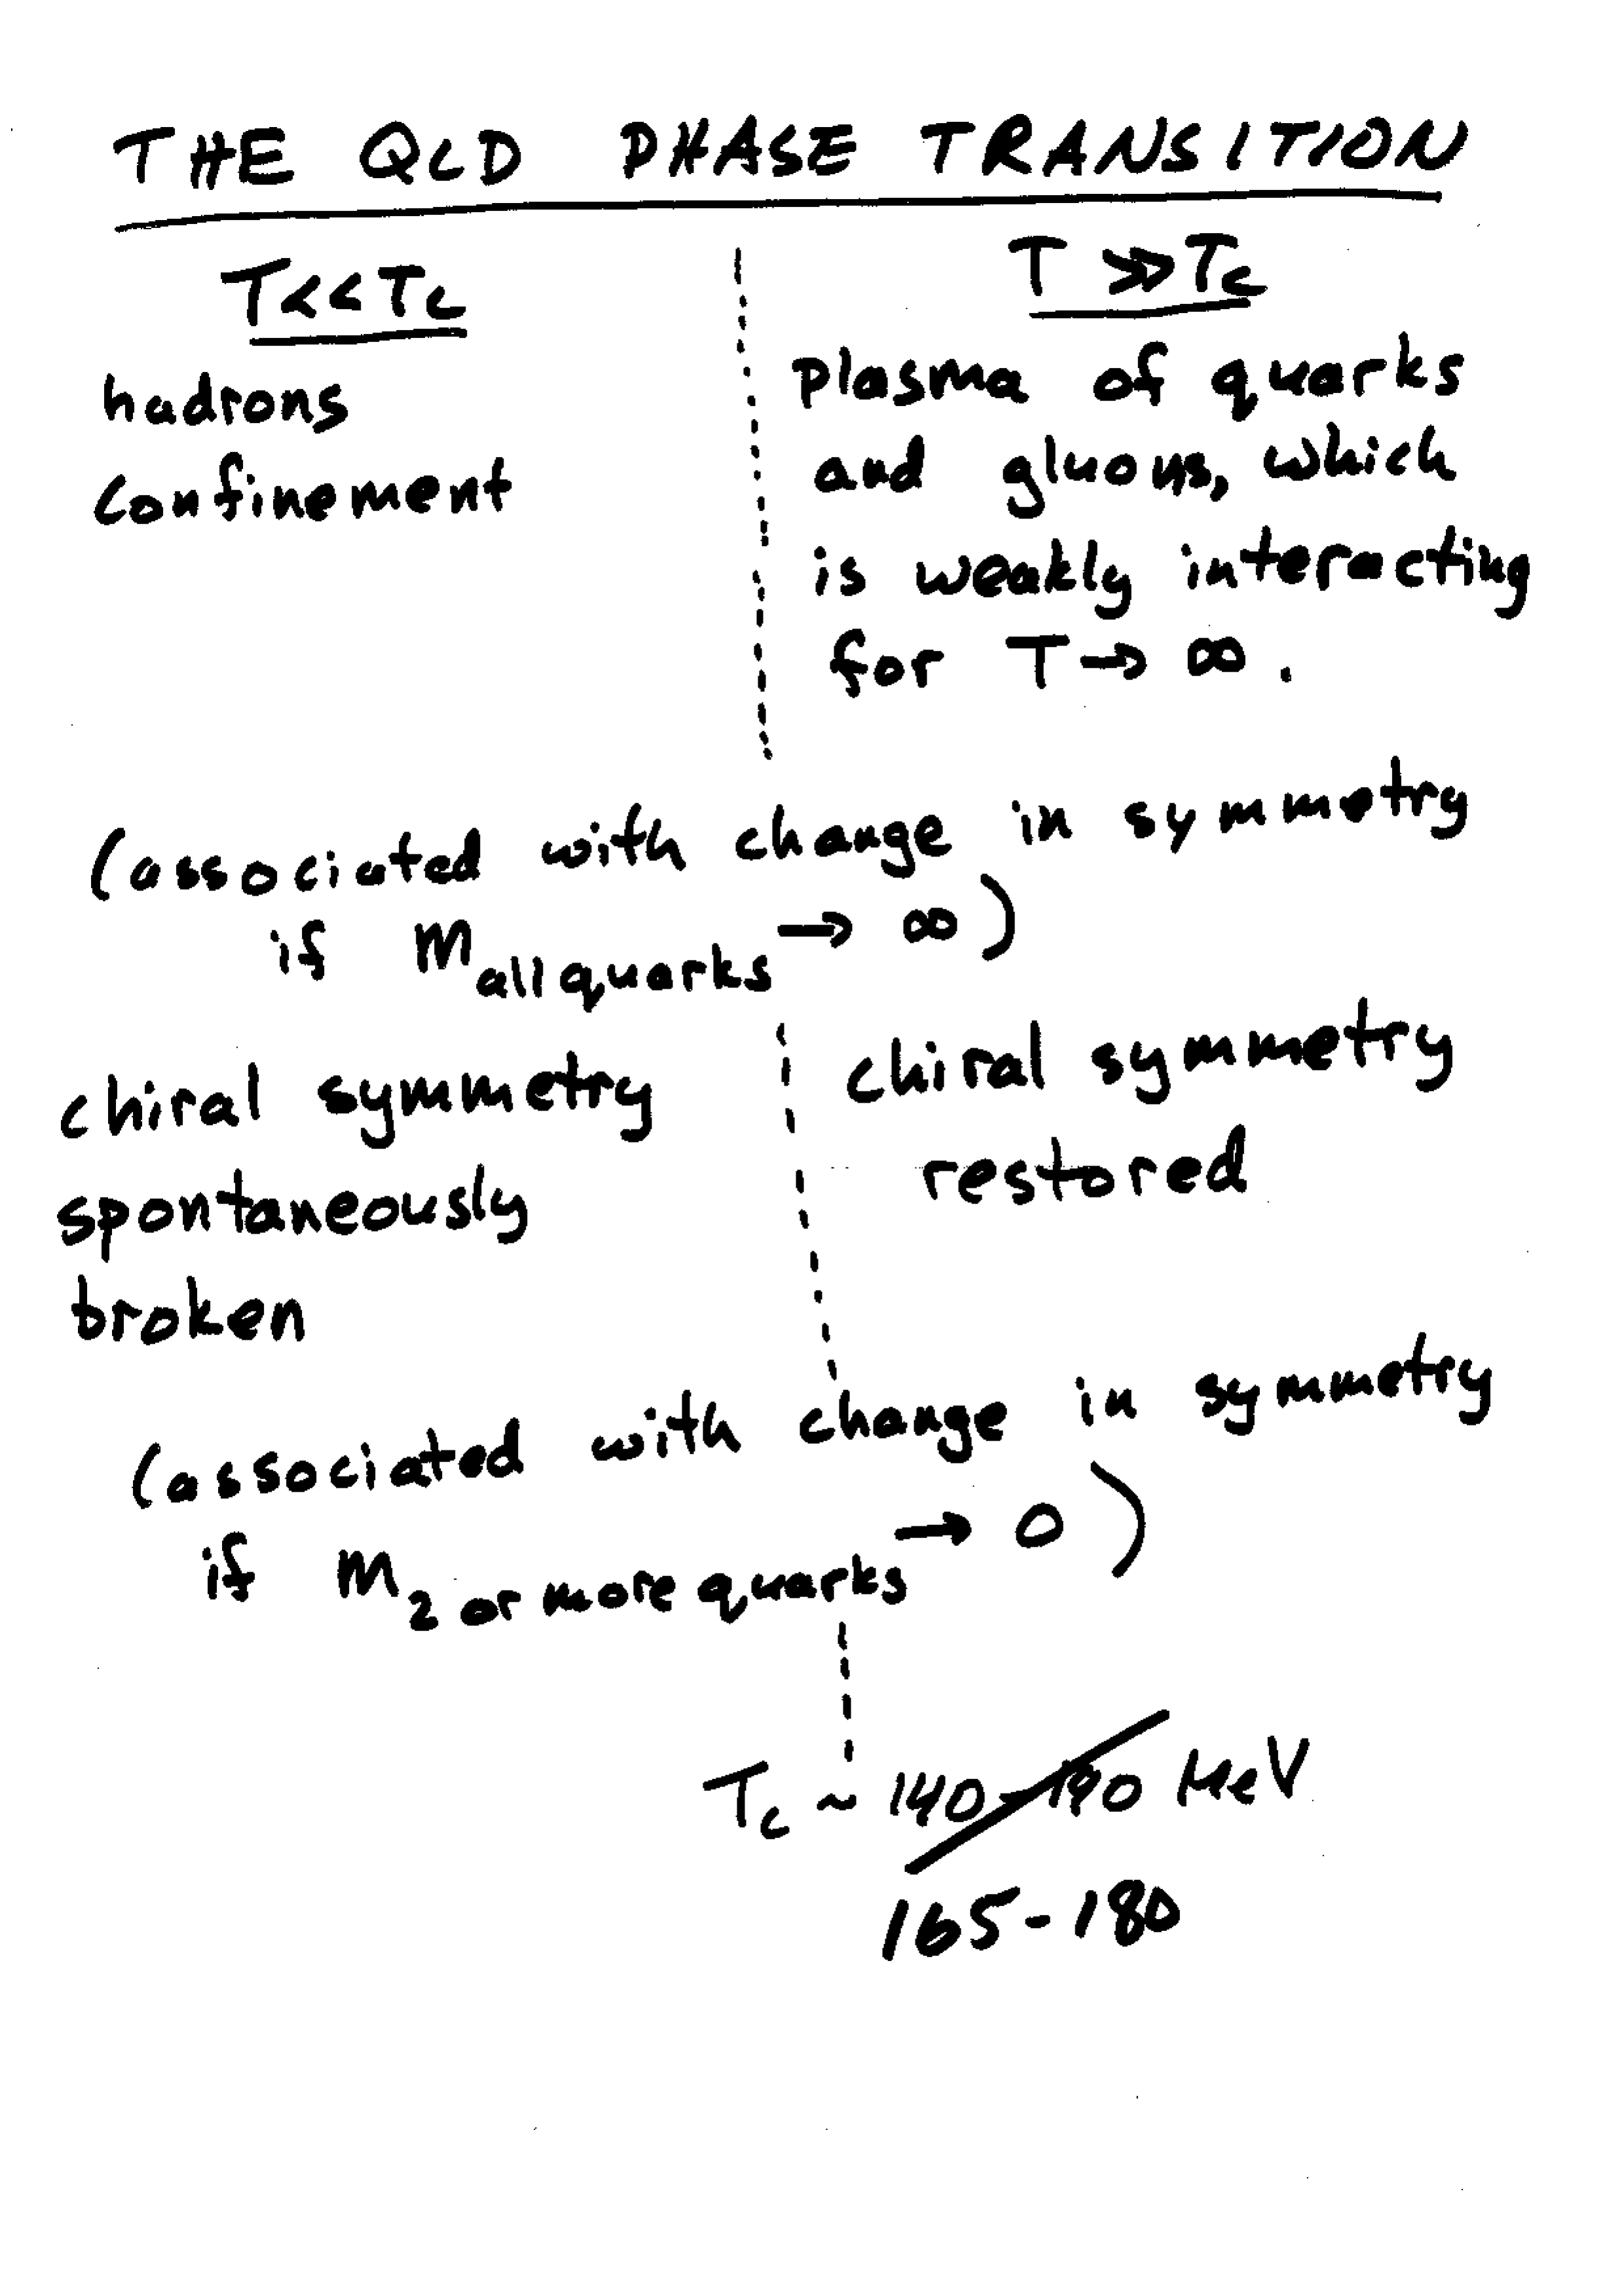 THE QCD PHASE TRANSITION
T<<Tc
T >>Tc
hadrons
confinement
plasma of quarks
and gluons, which
is weakly interacting
for T→ ∞.
(associated with change in symmetry
if m all quarks → ∞)
chiral symmetry
spontaneously
broken
chiral symmetry
restored
(associated with change in symmetry
if m 2 or more quarks → 0)
Tc ~ 140-190 MeV
165-180